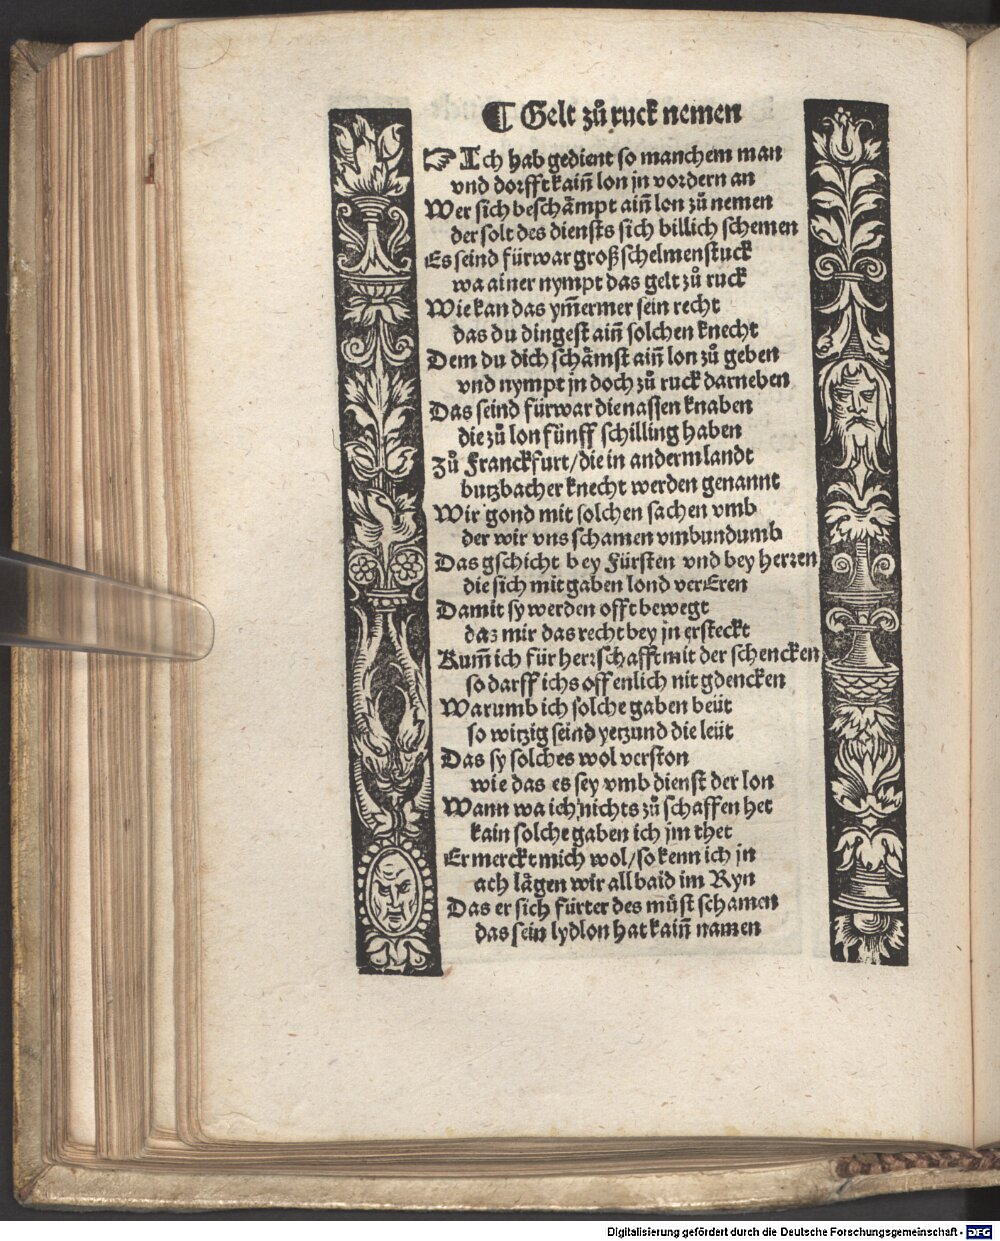 ¶ Gelt zů ruck nemen
☞ Ich hab gedient so manchem man
vnd dorfft kaiñ lon jn vordern an
Wer sich beschämpt aiñ lon zů nemen
der solt des diensts sich billich schemen
Es seind fürwar groß schelmenstuck
wa ainer nympt das gelt zů ruck
Wie kan das ym̃ermer sein recht
das du dingest aiñ solchen knecht
Dem du dich schämst aiñ lon zů geben
vnd nympt jn doch zů ruck darneben
Das seind fürwar die nassen knaben
die zů lon fünff schilling haben
Zů Franckfurt/die in anderm landt
butzbacher knecht werden genannt
Wir gond mit solchen sachen vmb
der wir vns schamen vmbundumb
Das gschicht bey Fürsten vnd bey herren
die sich mit gaben lond verEren
Damit sy werden offt bewegt
daz mir das recht bey jn ersteckt
Kum̃ ich für herrschafft mit der schencken
so darff ichs offenlich nit gdencken
Warumb ich solche gaben beüt
so witzig seind yetzund die leüt
Das sy solches wol verston
wie das es sey vmb dienst der lon
Wann wa ich nichts zů schaffen het
kain solche gaben ich jm thet
Er merckt mich wol/so kenn ich jn
ach lägen wir all baid im Ryn
Das er sich fürter des müst schamen
das sein lydlon hat kaiñ namen
Digitalisierung gefördert durch die Deutsche Forschungsgemeinschaft - DFG